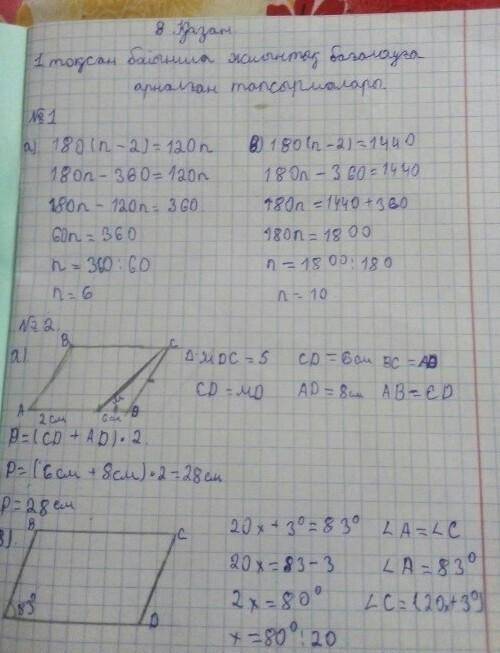 8 Қазан
1 тоқсан бойынша жиынтық бағалауға
арналған тапсырмалары.
№1
а). 180(n-2)=120n
180n-360=120n
180n-120n=360
60n=360
n=360:60
n=6
в) 180(n-2)=1440
180n-360=1440
180n=1440+360
180n=1800
n=1800:180
n=10
№2.
а).
B C
A 2см M 6см D
Δ MDC=5 CD=6см BC=AD
CD=MD AD=8см AB=CD
P=(CD+AD)·2
P=(6см+8см)·2=28см
P=28см
в).
B C
83° D
20x+3°=83° ∠A=∠C
20x=83-3 ∠A=83°
2x=80° ∠C=(20x+3°)
x=80°:20